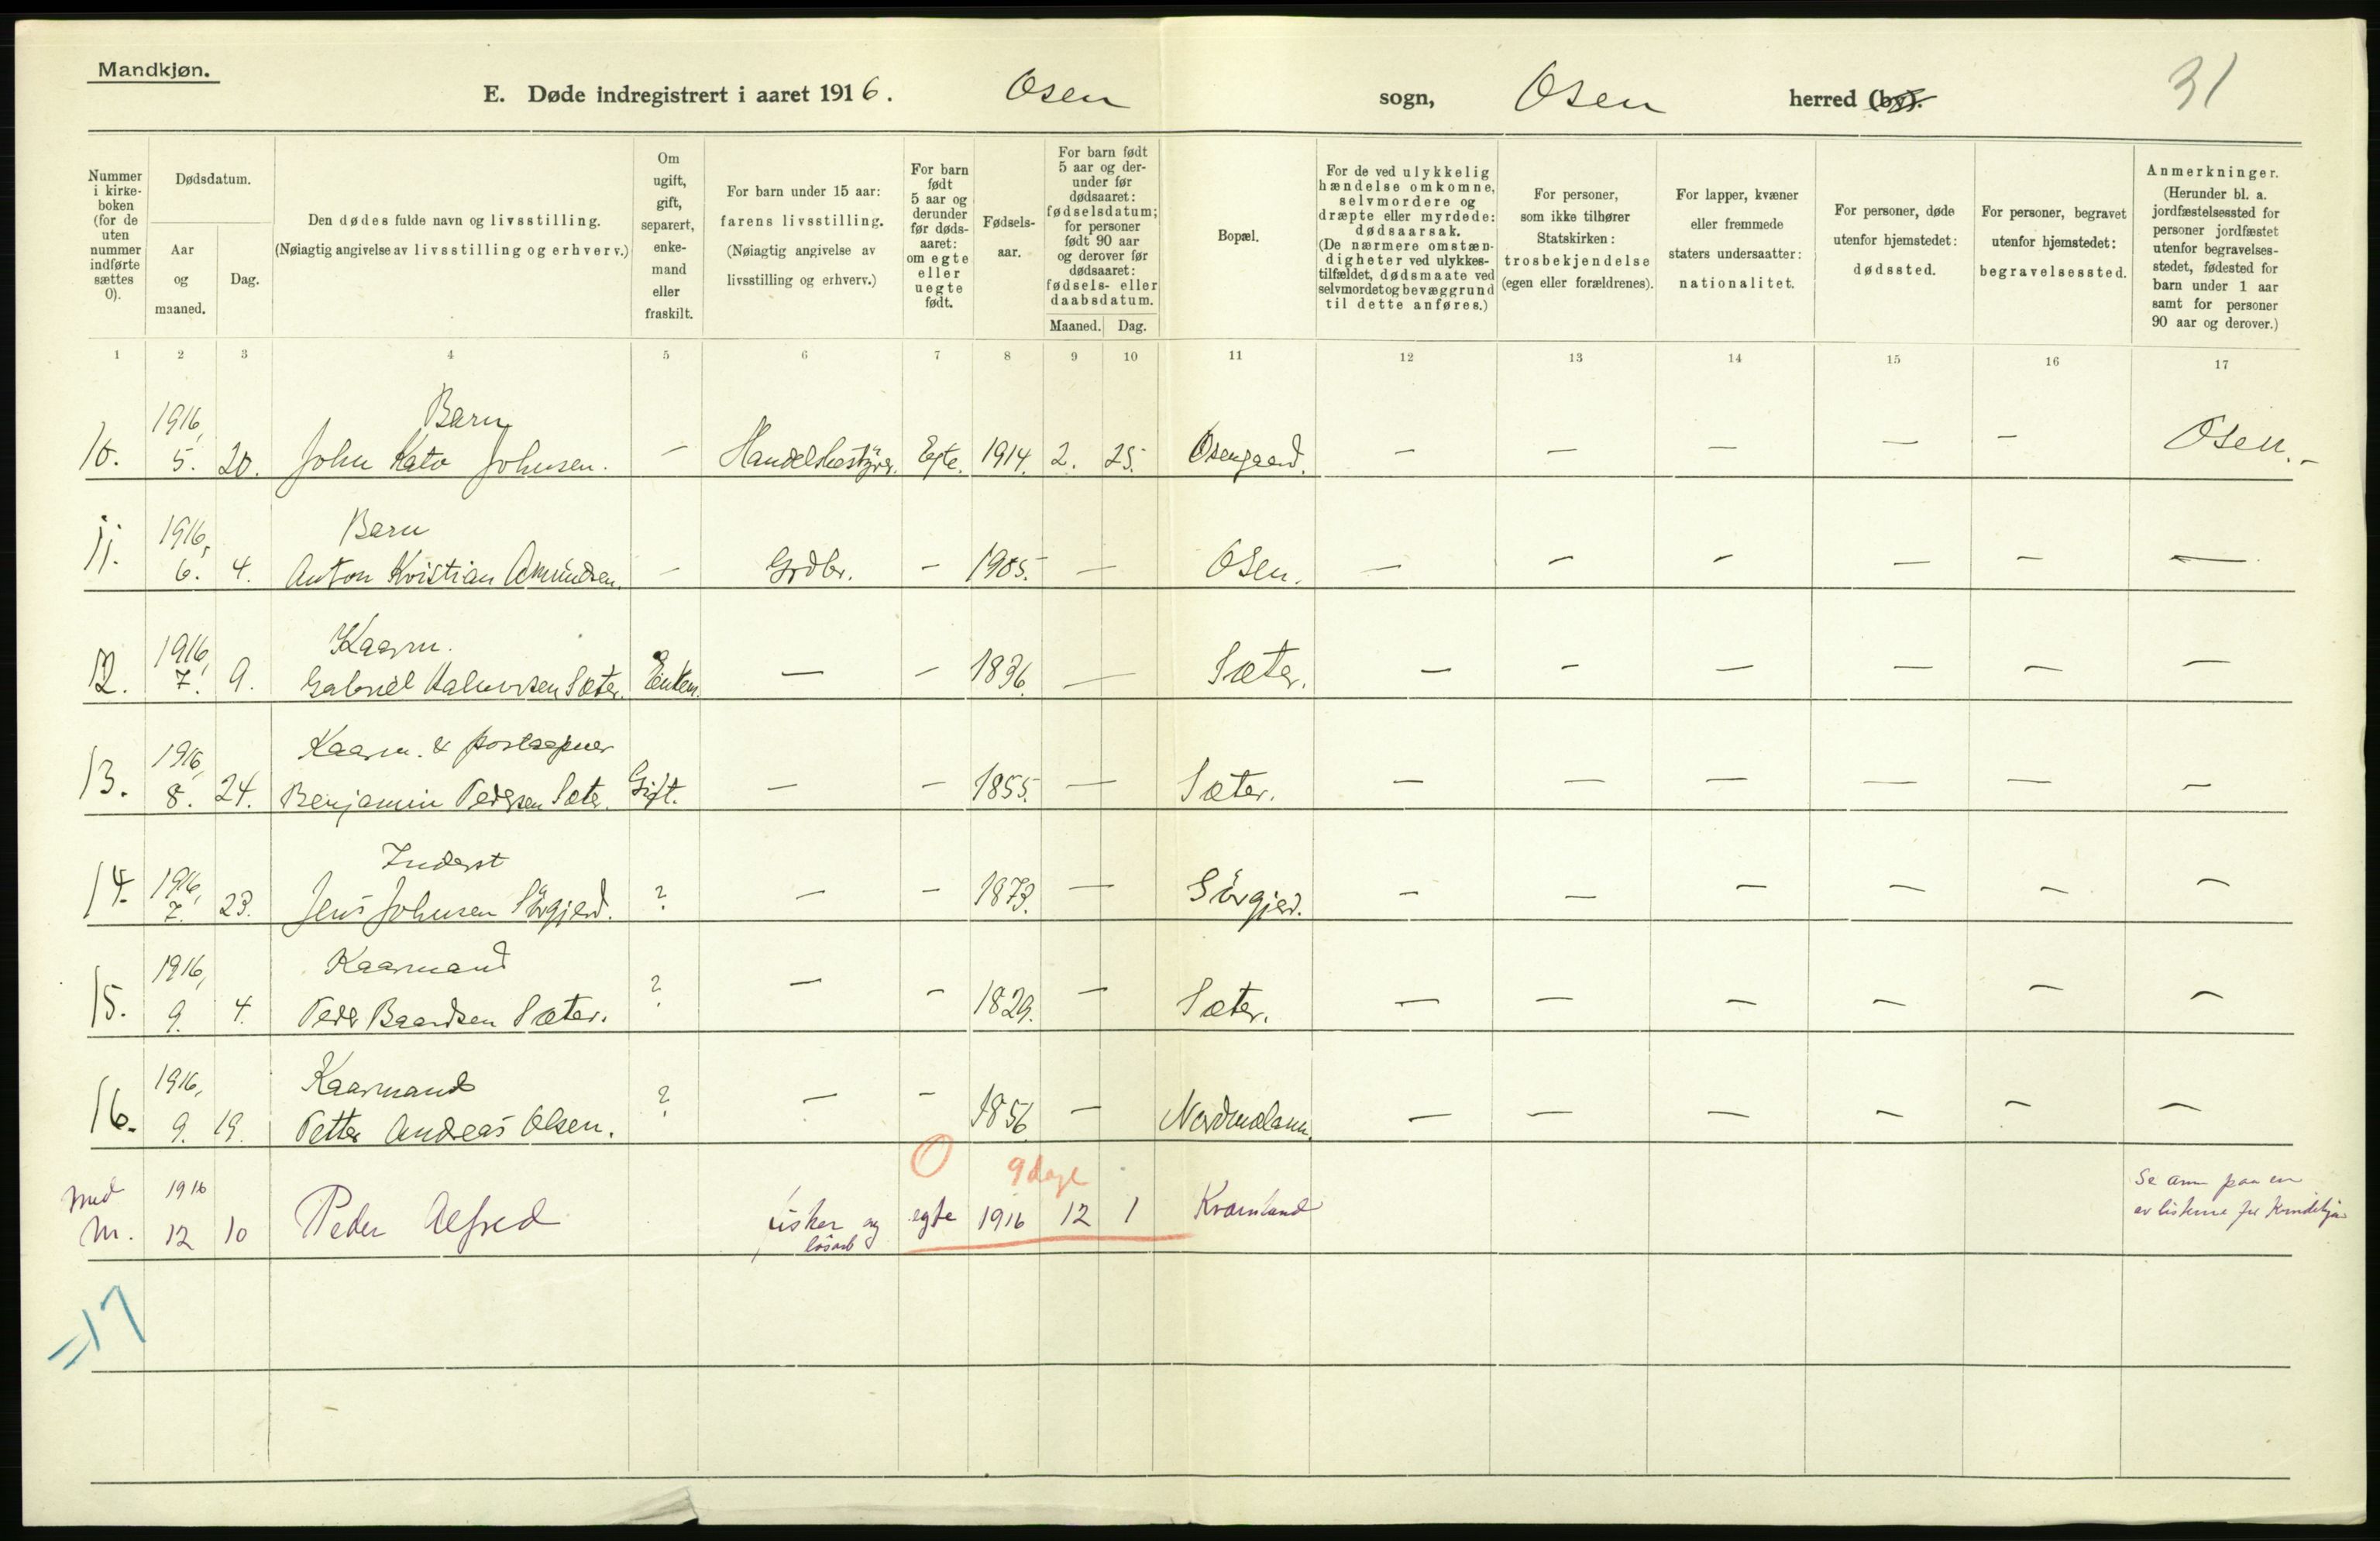 Mandkjøn.
E. Døde indregistrert i aaret 1916. Osen sogn, Osen herred (by). 31
Nummer i kirke-boken (for de uten nummer indførte sættes 0).
Dødsdatum.
Aar og maaned.
Dag.
Den dødes fulde navn og livsstilling.
(Nøiagtig angivelse av livsstilling og erhverv.)
Om ugift, gift, separert, enke-mand eller fraskilt.
For barn under 15 aar: farens livsstilling.
(Nøiagtig angivelse av livsstilling og erhverv.)
For barn født 5 aar og derunder før døds-aaret: om egte eller uegte født.
Fødsels-aar.
For barn født 5 aar og der-under før dødsaaret: fødselsdatum; for personer født 90 aar og derover før dødsaaret: fødsels- eller daabsdatum.
Maaned. Dag.
Bopæl.
For de ved ulykkelig hændelse omkomne, selvmordere og dræpte eller myrdede: dødsaarsak.
(De nærmere omstæn-digheter ved ulykkes-tilfældet, dødsmaate ved selvmordet og bevæggrund til dette anføres.)
For personer, som ikke tilhører Statskirken: trosbekjendelse (egen eller forældrenes).
For lapper, kvæner eller fremmede staters undersaatter: nationalitet.
For personer, døde utenfor hjemstedet: dødssted.
For personer, begravet utenfor hjemstedet: begravelsessted.
Anmerkninger.
(Herunder bl. a. jordfæstelsessted for personer jordfæstet utenfor begravelses-stedet, fødested for barn under 1 aar samt for personer 90 aar og derover.)
1 2 3 4 5 6 7 8 9 10 11 12 13 14 15 16 17
1916, Barn
10. 5. 20. John Kato Johnsen. — Handelsbestyrer. Egte. 1914. 2. 25. Osengaard. — — — — — Osen. -
1916, Barn
11. 6. 4. Anton Kristian Amundsen. — Grdbr. — 1905. — Osen. — — — — — —
1916, Kaarm.
12. 7. 9. Gabriel Halvorsen Sæter. Enkem. — — 1836. — Sæter. — — — — — —
1916, Kaarm. & postaapner
13. 8. 24. Benjamin Pedersen Sæter. Gift. — — 1855. — Sæter. — — — — — —
1916, Inderst
14. 7. 23. Jens Johnsen Sörgjerd. ? — — 1873. — Sörgjerd. — — — — — —
1916, Kaarmand
15. 9. 4. Peder Baardsen Sæter. ? — — 1829. — Sæter. — — — — — —
1916, Kaarmand
16. 9. 19. Petter Andreas Olsen. ? — — 1856 — Nordmelann. — — — — — —
0 9 dage
med 1916 Se anm paa en
m. 12 10 Peder Alfred fisker og egte 1916 12 1 Kvarnland av listerne for Kvindekjøn
løsarb
=17